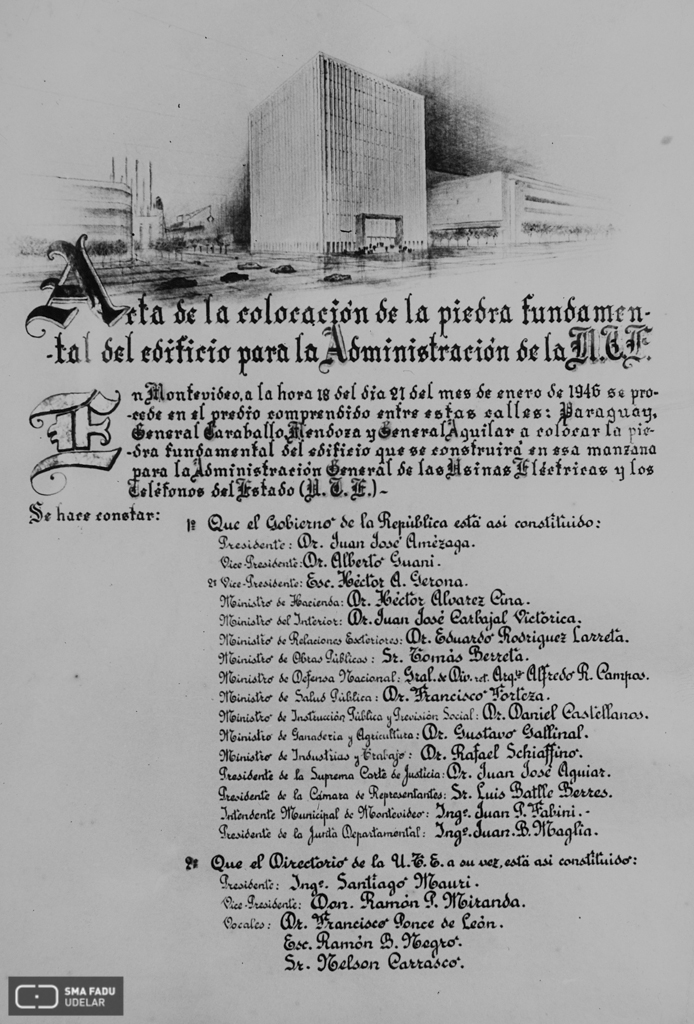 Acta de la colocación de la piedra fundamen-
-tal del edificio para la Administración de la U.T.E.
En Montevideo, a la hora 18 del dia 21 del mes de enero de 1946 se pro-
cede en el predio comprendido entre estas calles: Paraguay,
General Caraballo, Mendoza y General Aguilar a colocar la pie-
dra fundamental del edificio que se construirá en esa manzana
para la Administración General de las Usinas Eléctricas y los
Teléfonos del Estado (U.T.E.)-
Se hace constar:
1º Que el Gobierno de la República está asi constituido:
Presidente: Dr. Juan José Amézaga.
Vice-Presidente: Dr. Alberto Guani.
2º Vice-Presidente: Esc. Héctor A. Gerona.
Ministro de Hacienda: Dr. Héctor Alvarez Cina.
Ministro del Interior: Dr. Juan José Carbajal Victorica.
Ministro de Relaciones Exteriores: Dr. Eduardo Rodriguez Larreta.
Ministro de Obras Públicas: Sr. Tomás Berreta.
Ministro de Defensa Nacional: Gral. de Div. ret. Arqº Alfredo R. Campos.
Ministro de Salud Pública: Dr. Francisco Forteza.
Ministro de Instrucción Pública y Previsión Social: Dr. Daniel Castellanos.
Ministro de Ganaderia y Agricultura: Dr. Gustavo Gallinal.
Ministro de Industrias y Trabajo: Dr. Rafael Schiaffino.
Presidente de la Suprema Corte de Justicia: Dr. Juan José Aguiar.
Presidente de la Cámara de Representantes: Sr. Luis Batlle Berres.
Intendente Municipal de Montevideo: Ingº. Juan P. Fabini.-
Presidente de la Junta Departamental: Ingº. Juan. B. Maglia.
2º Que el Directorio de la U.T.E. a su vez, está asi constituido:
Presidente: Ingº. Santiago Mauri.
Vice-Presidente: Don. Ramón P. Miranda.
Vocales: Dr. Francisco Ponce de León.
Esc. Ramón B. Negro.
Sr. Nelson Carrasco.
SMA FADU
UDELAR